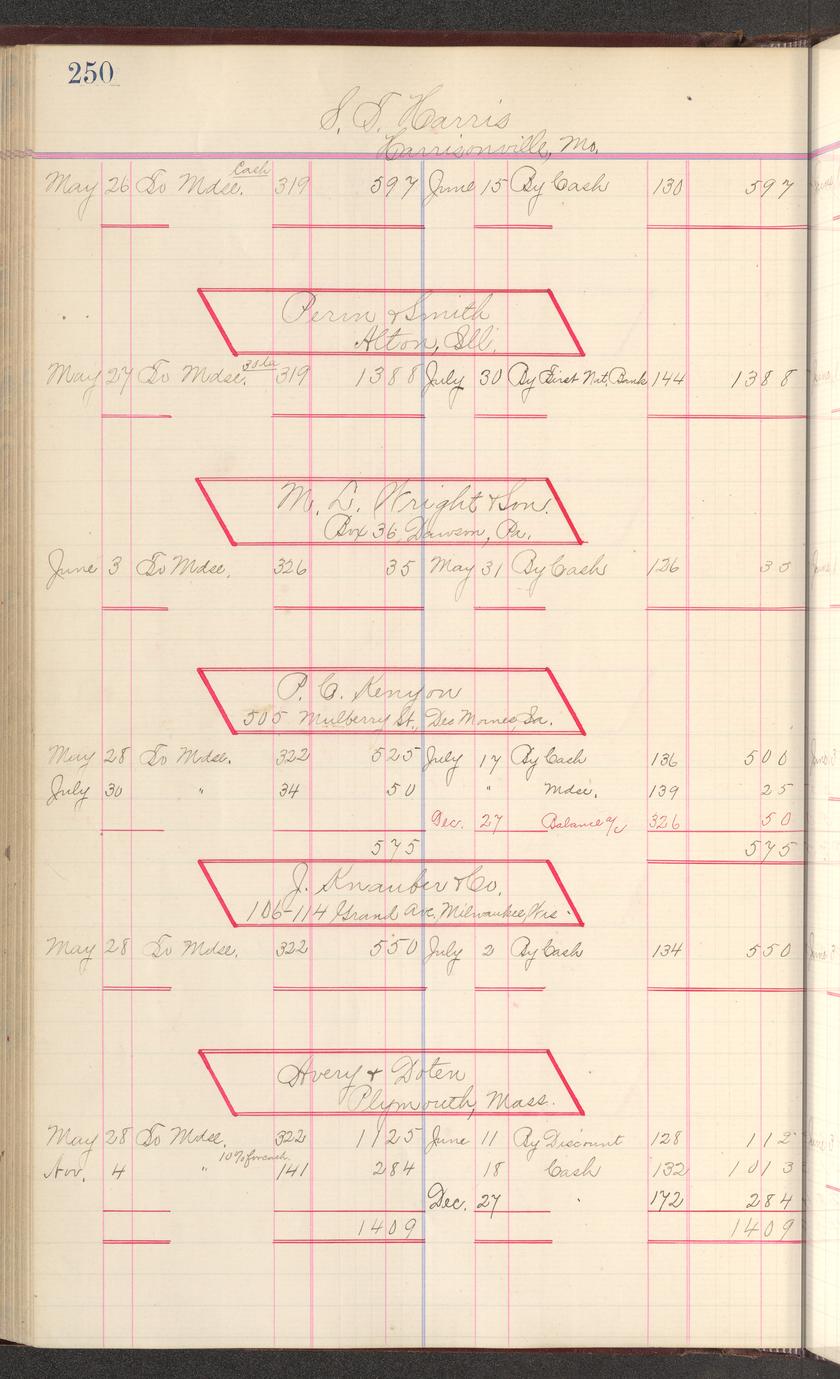 250
S. T. Harris
Harrisonville, Mo.
Cash
May 26 To Mdse. 319 597 June 15 By Cash 130 597
Perin & Smith
Alton, Ill.
30 da
May 27 To Mdse. 319 1388 July 30 By First Nat. Bank 144 1388
M. L. Wright & Son.
Box 36, Dawson, Pa.
June 3 To Mdse. 326 35 May 31 By Cash 126 35
P. C. Kenyon
505 Mulberry St., Des Moines, Ia.
May 28 To Mdse. 322 525 July 17 By Cash 136 500
July 30 " 34 50 " Mdse. 139 25
Dec. 27 Balance a/c 326 50
575 575
J. Knauber & Co.
106-114 Grand Ave. Milwaukee, Wis.
May 28 To Mdse. 322 550 July 2 By Cash 134 550
Avery & Doten
Plymouth, Mass.
May 28 To Mdse. 322 1125 June 11 By Discount 128 112
10% for cash.
Nov. 4 " 141 284 18 Cash 132 1013
Dec. 27 " 172 284
1409 1409